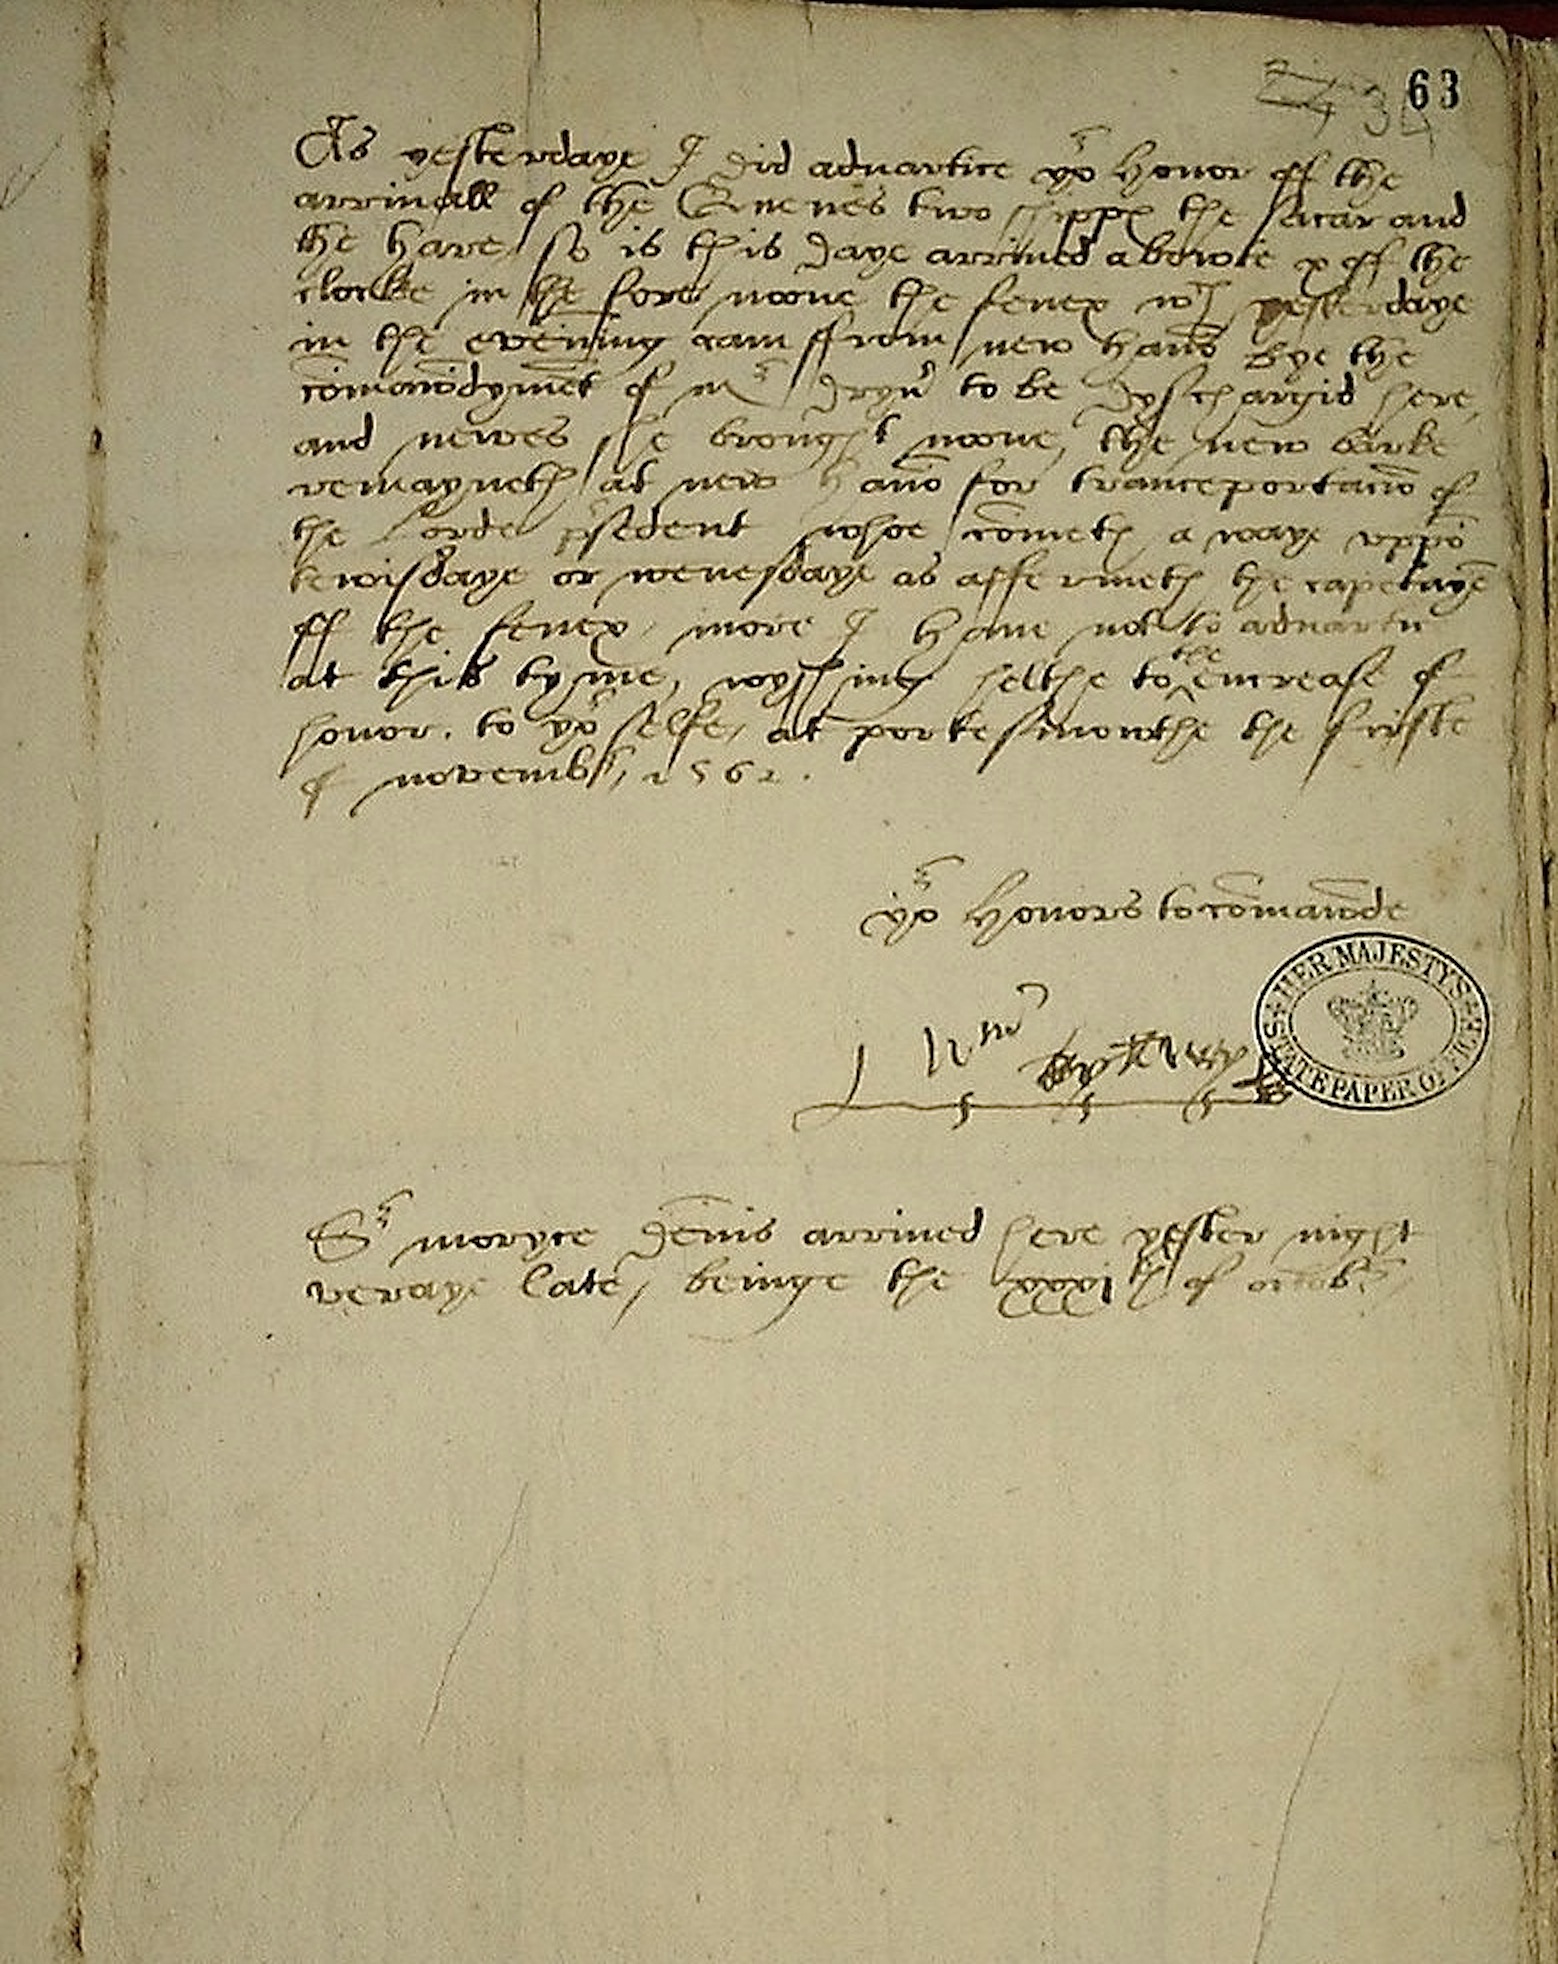 63
As yesterdaye I did aduartice yor honor off the
arrivall of the Quenes two shippes the sacar and
the hare so is this daye arrived abowte x off the
clocke in the fore noone the fenex wch yesterdaye
in the evening cam ffrom new hauē bye the
cōmaōdymēt of mr to be dyschargid here,
and newes he brought noone, the new barke
remayneth at new hauē for tranceportaciō of
the Lorde psedent whoe cōmeth a waye uppō
tewisdaye or wenesdaye as affermeth the capetayē
off the fenex, more I haue not to aduartis
at this tyme, wysshing helthe to the encrease of
honor. to yor selfe, at portesmowthe the firste
of novembr, 1562.
yor honors to cōmaōde
Wm
HER MAJESTY'S STATE PAPER OFFICE
Sr moryce dēnis arrived here yester night
veraye late, beinge the xxxith of octobr